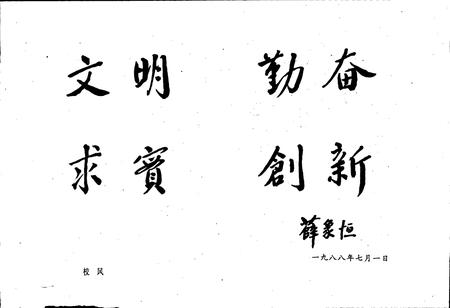 文明 勤奋
求實 創新
薛象恒
一九八八年七月一日
校风